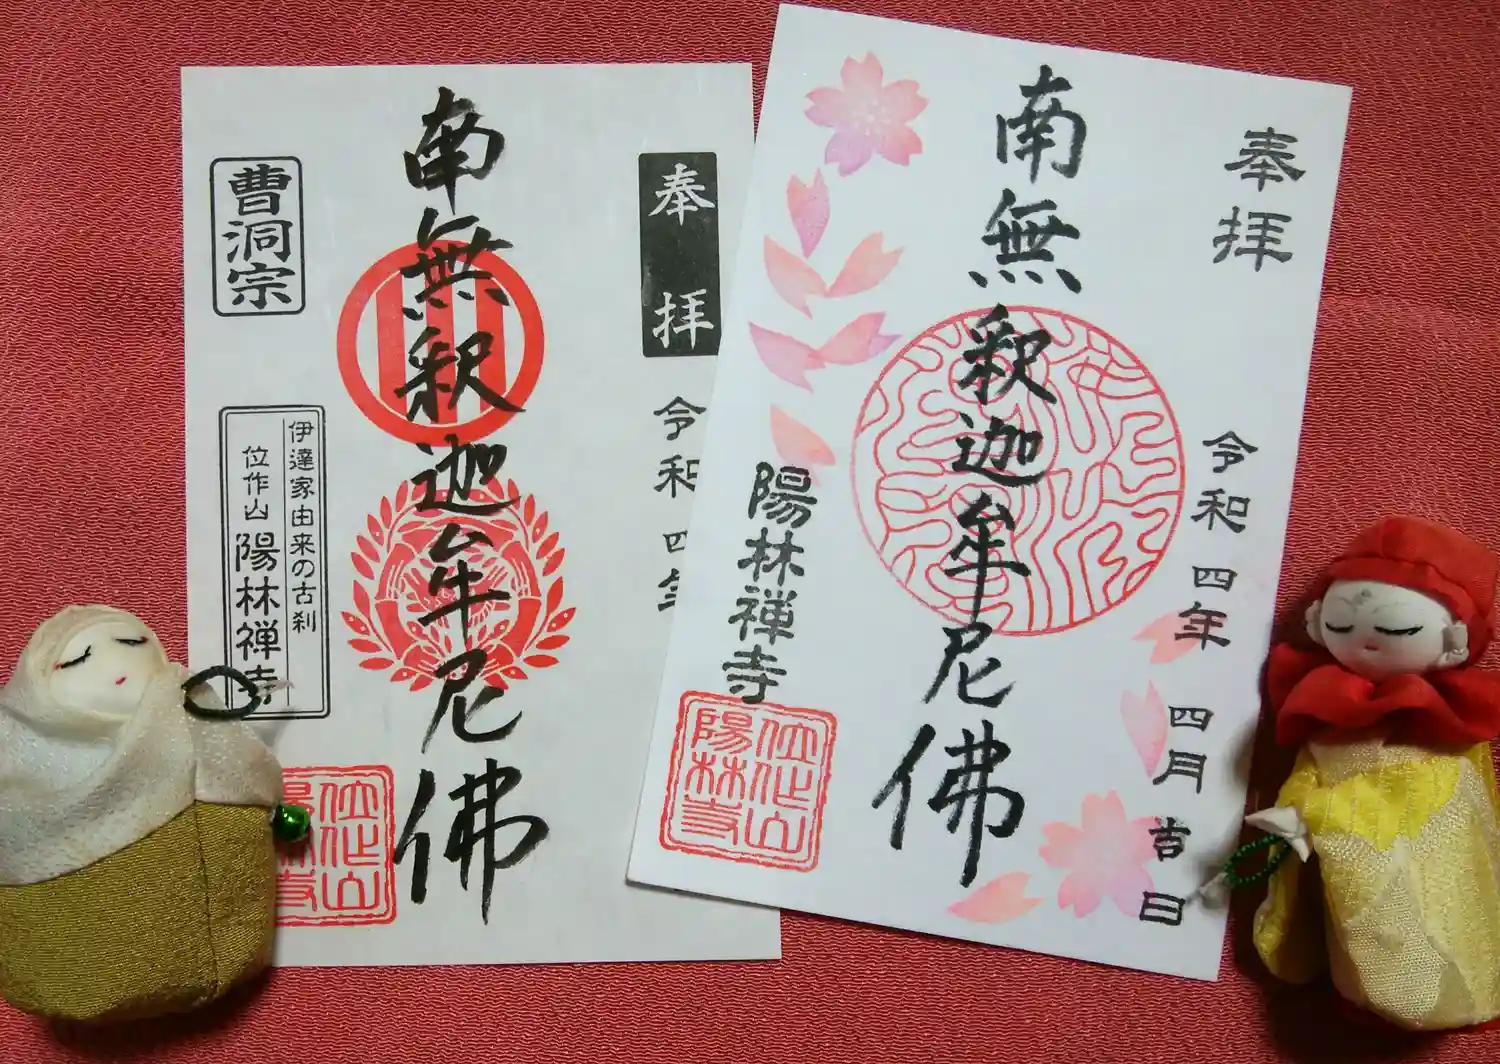 奉拝
令和四年
南無釈迦牟尼佛
曹洞宗
伊達家由来の古刹
位作山 陽林禅寺
奉拝
令和四年四月吉日
南無釈迦牟尼佛
陽林禅寺
位作山
陽林寺